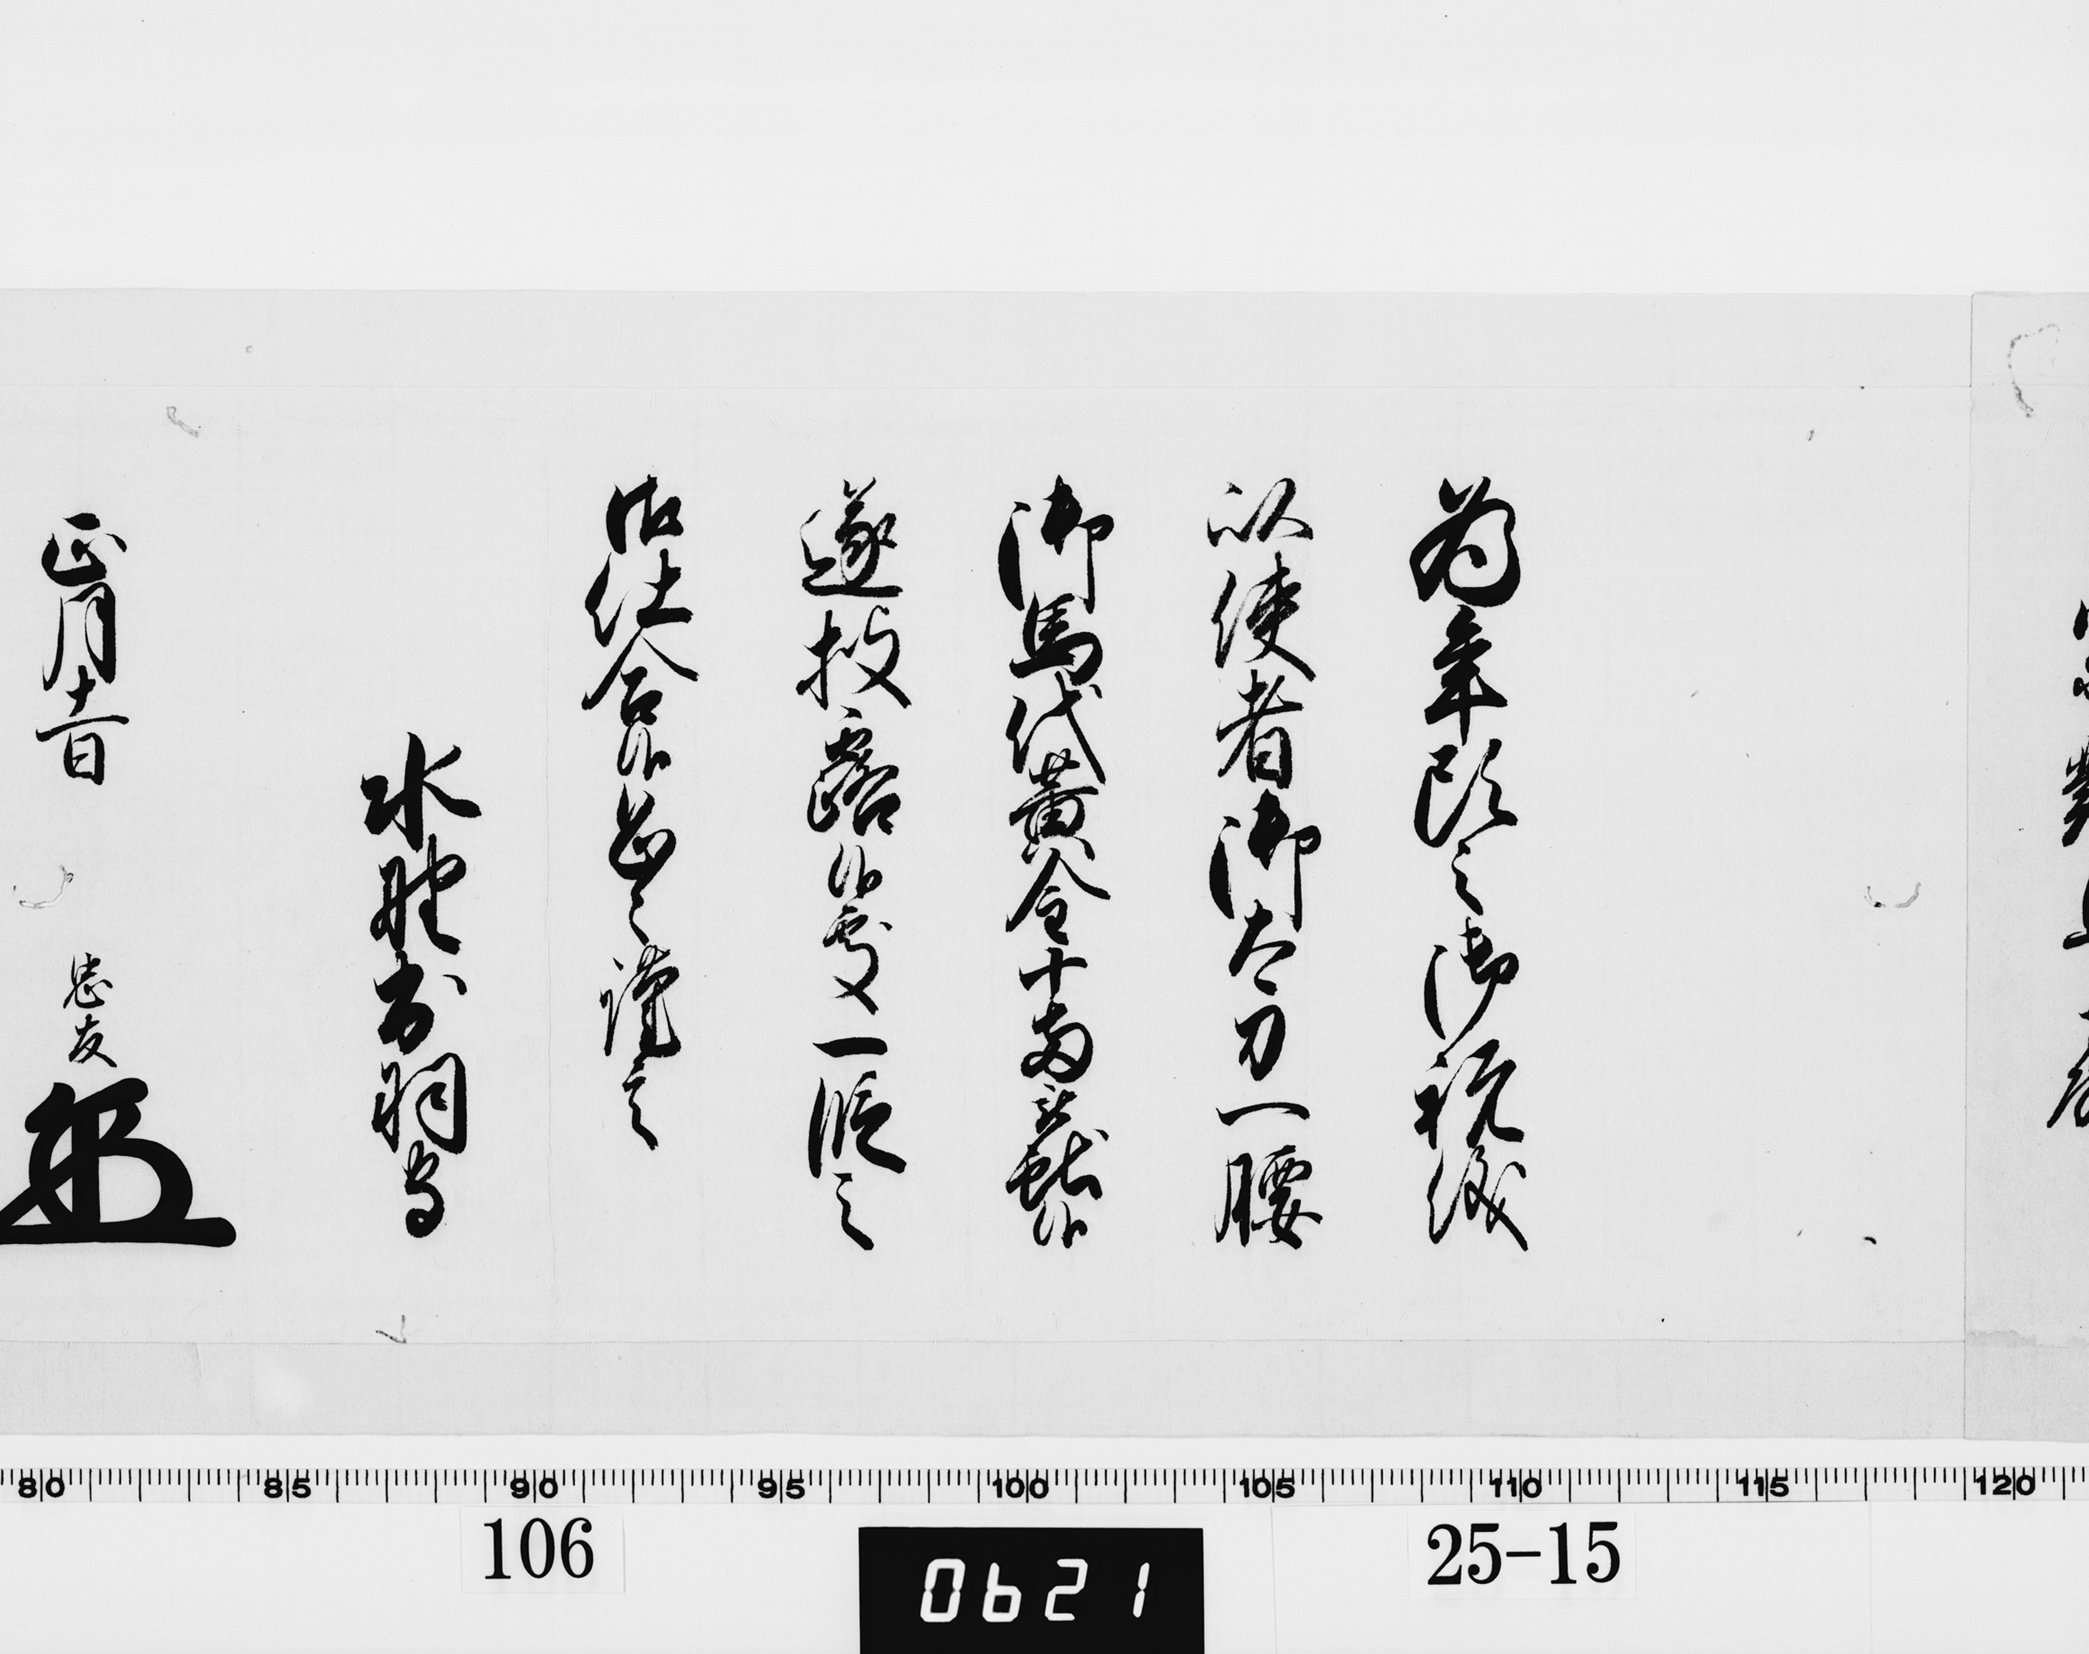 為年頭之御祝儀
以使者御太刀一腰
御馬代黄金十両被献候
遂披露候処一段之
御仕合候恐々謹言
水野出羽守
正月十一日 忠友
80 85 90 95 100 105 110 115 120
106
0621
25-15